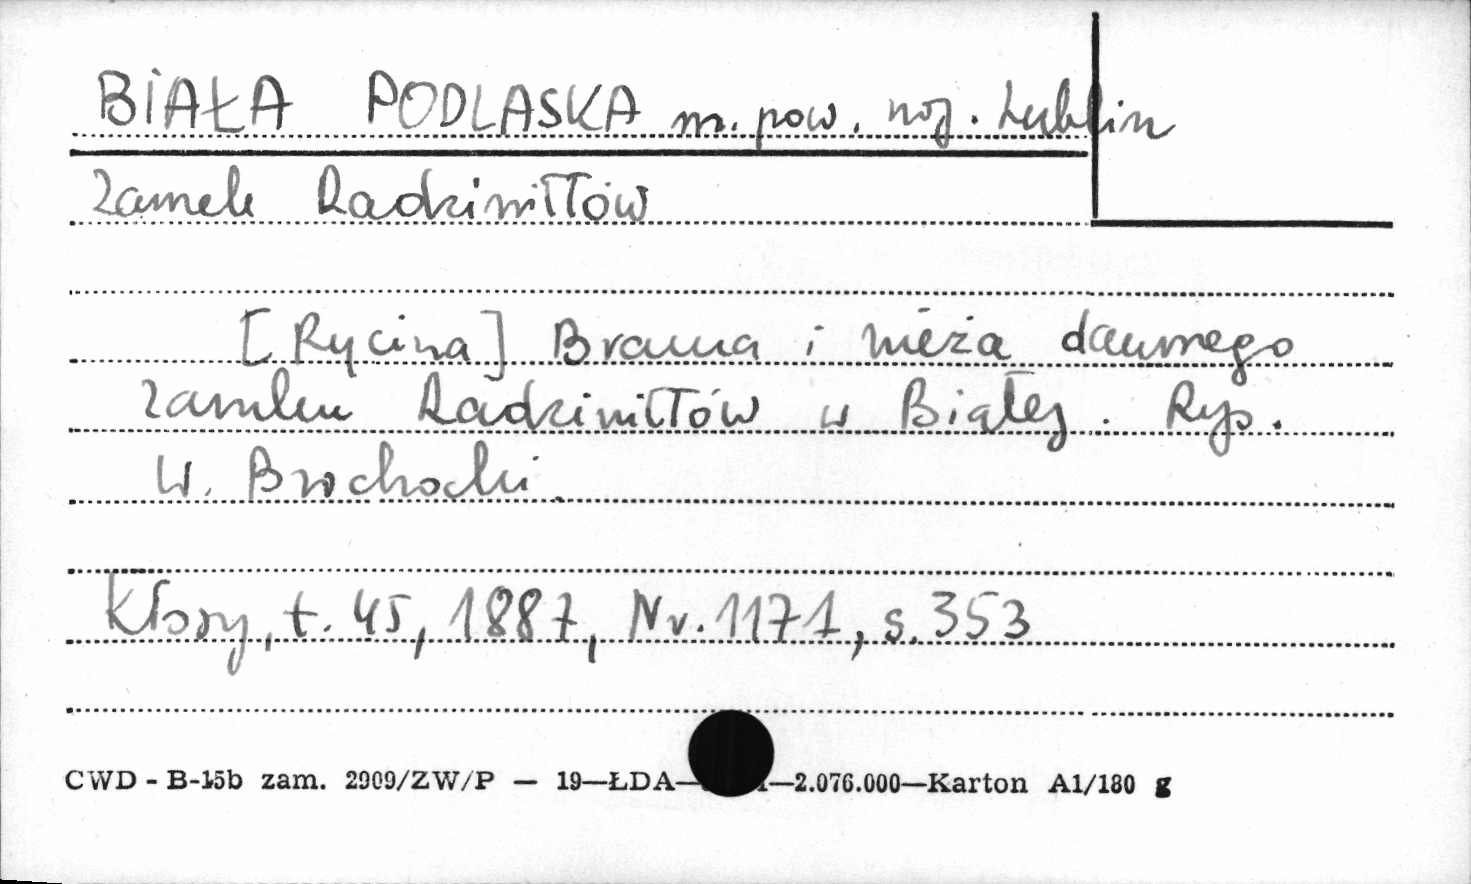 BIAŁA PODLASKA m. pow. woj. Lublin
Zamek Radziwiłłów
[Rycina] Brama i wieża dawnego
zamku Radziwiłłów w Białej. Rys.
W. Brochocki.
Kłosy, t. 45, 1887, Nr. 1171, s. 353
CWD - B-15b zam. 2909/ZW/P — 19—ŁDA— —2.076.000—Karton A1/180 g